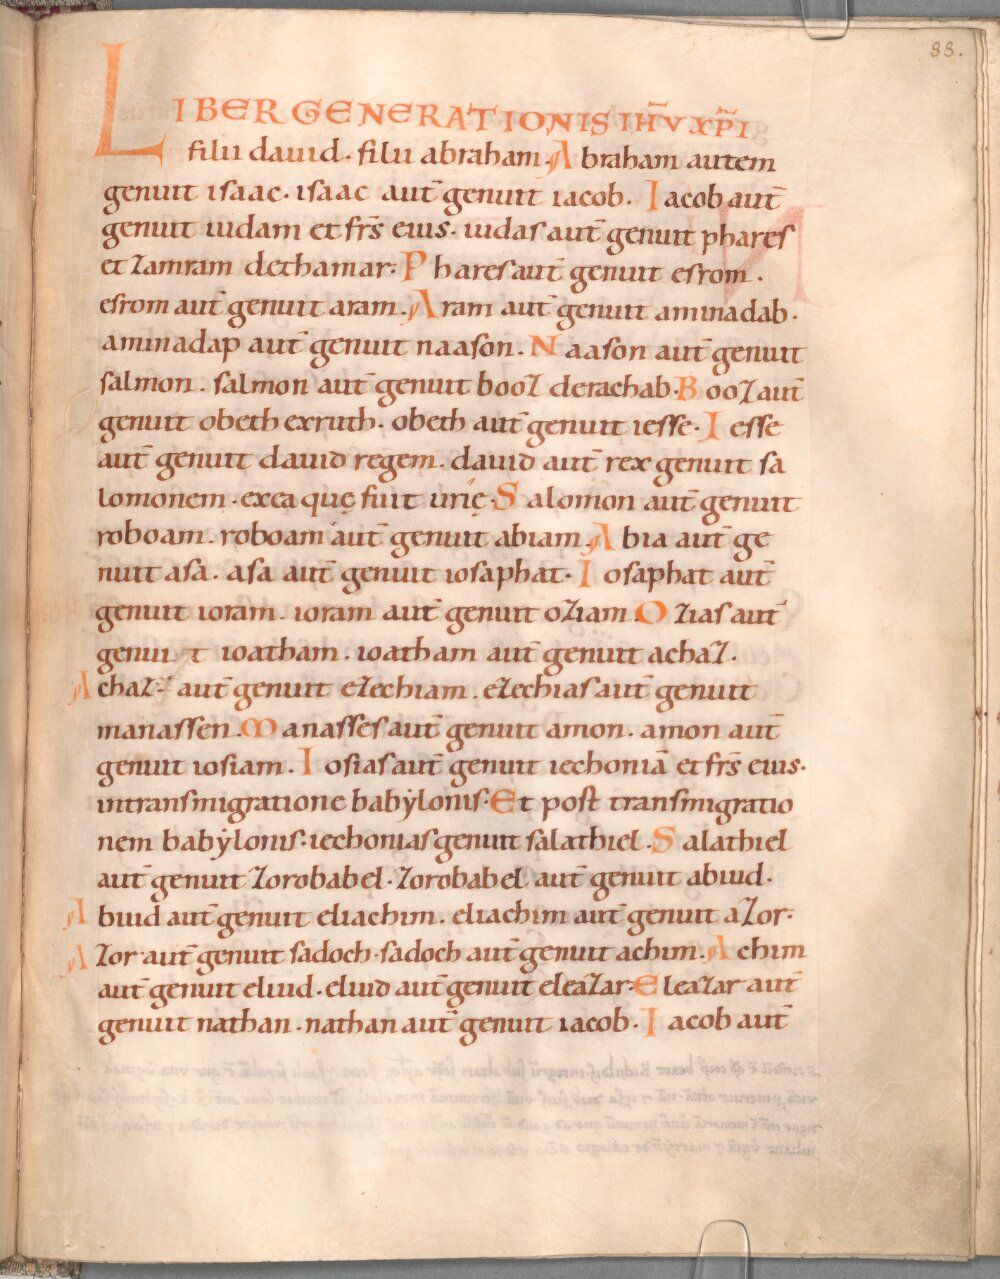 88.
LIBER GENERATIONIS IH̄V XP̄I
filii dauid. filii abraham. Abraham autem
genuit isaac. isaac aut̄ genuit iacob. Iacob aut̄
genuit iudam et fr̄s eius. iudas aut̄ genuit phares
et zamram dethamar. Phares aut̄ genuit esrom.
esrom aut̄ genuit aram. Aram aut̄ genuit aminadab.
aminadap aut̄ genuit naason. Naason aut̄ genuit
salmon. salmon aut̄ genuit booz derachab. Booz aut̄
genuit obeth exruth. obeth aut̄ genuit iesse. Iesse
aut̄ genuit dauid regem. dauid aut̄ rex genuit sa
lomonem. exea quę fuit urię. Salomon aut̄ genuit
roboam. roboam aut̄ genuit abiam. Abia aut̄ ge
nuit asa. asa aut̄ genuit iosaphat. Iosaphat aut̄
genuit ioram. ioram aut̄ genuit oziam. Ozias aut̄
genuit ioatham. ioatham aut̄ genuit achaz.
Achaz aut̄ genuit ezechiam. ezechias aut̄ genuit
manassen. Manasses aut̄ genuit amon. amon aut̄
genuit iosiam. Iosias aut̄ genuit iechoniā et fr̄s eius.
intransmigratione babylonis. Et post transmigratio
nem babylonis. iechonias genuit salathiel. Salathiel
aut̄ genuit zorobabel. zorobabel aut̄ genuit abiud.
Abiud aut̄ genuit eliachim. eliachim aut̄ genuit azor.
Azor aut̄ genuit sadoch. sadoch aut̄ genuit achim. Achim
aut̄ genuit eliud. eliud aut̄ genuit eleazar. Eleazar aut̄
genuit nathan. nathan aut̄ genuit iacob. Iacob aut̄